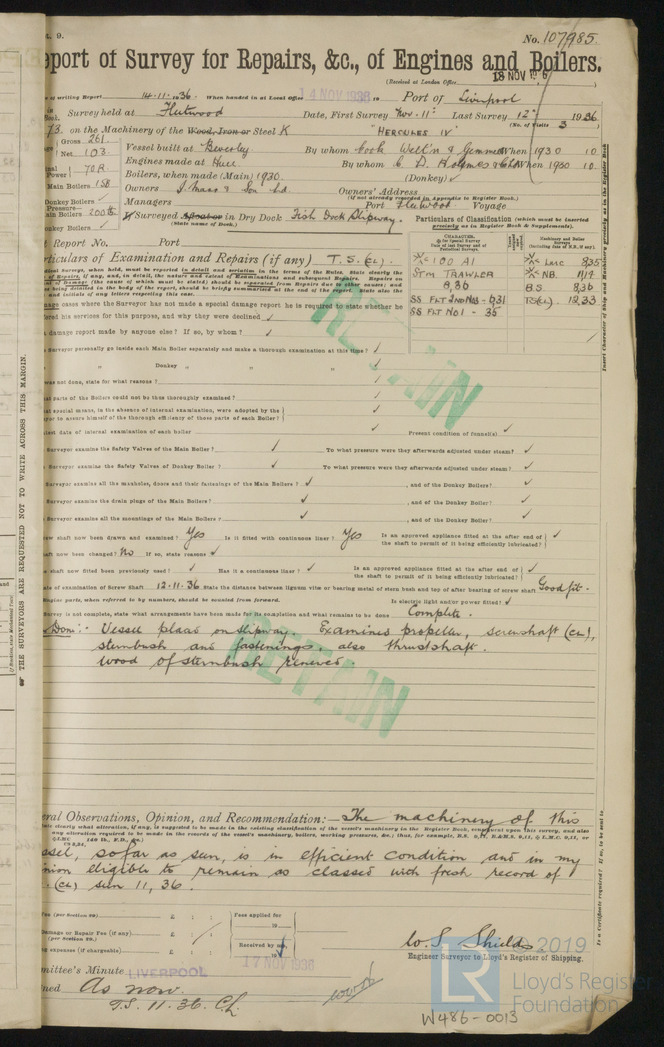 No. 107985.
eport of Survey for Repairs, &c., of Engines and Boilers.
(Received at London Office 18 NOV 1936)
of writing Report 14.11.1936 When handed in at Local Office 14 NOV 1936 Port of Liverpool
Survey held at Fleetwood Date, First Survey Nov. 11th Last Survey 12th 1936
(No. of Visits 3
73. on the Machinery of the Wood, Iron or Steel K "HERCULES IV"
Gross 261
Net 103
Vessel built at Beverley By whom Cook Well'n & Gemmell When 1930 10
Engines made at Hull By whom C. D. Holmes & Co Ltd When 1930 10
Power 70R
Boilers, when made (Main) 1930. (Donkey) ✓
Main Boilers 1SB
Owners I. Marr & Son Ld. Owners' Address
(if not already recorded in Appendix to Register Book.)
Donkey Boilers ✓
Managers Port Fleetwood Voyage
Pressure—
ain Boilers 200 lb
onkey Boilers ✓
If Surveyed Afloat or in Dry Dock Fish Dock Slipway.
(State name of Dock.)
Particulars of Classification (which must be inserted
precisely as in Register Book & Supplements).
t Report No. Port
rticulars of Examination and Repairs (if any) T.S.(CL).
CHARACTER.
Machinery and Boiler
Surveys
+ 100 A1
Stm TRAWLER
8,36
SS FLT 2nd NO3 - 6,31
SS FLT NO1 - 35
+ LMC 8,35
+ NB. 11,19
B.S 8,36
TS(CL) 12,33
mage cases where the Surveyor has not made a special damage report he is required to state whether he
ered his services for this purpose, and why they were declined ✓
a damage report made by anyone else? If so, by whom? ✓
Surveyor personally go inside each Main Boiler separately and make a thorough examination at this time? ✓
" Donkey " " " ✓
was not done, state for what reasons? ✓
at parts of the Boilers could not be thus thoroughly examined? ✓
at special means, in the absence of internal examination, were adopted by the
yor to assure himself of the thorough efficiency of those parts of each Boiler? ✓
test date of internal examination of each boiler Present condition of funnel(s) ✓
Surveyor examine the Safety Valves of the Main Boiler? ✓ To what pressure were they afterwards adjusted under steam? ✓
Surveyor examine the Safety Valves of Donkey Boiler? ✓ To what pressure were they afterwards adjusted under steam? ✓
Surveyor examine all the manholes, doors and their fastenings of the Main Boilers? ✓ , and of the Donkey Boilers? ✓
Surveyor examine the drain plugs of the Main Boilers? ✓ , and of the Donkey Boiler? ✓
Surveyor examine all the mountings of the Main Boilers? ✓ , and of the Donkey Boiler? ✓
ew shaft now been drawn and examined? Yes Is it fitted with continuous liner? Yes Is an approved appliance fitted at the after end of
the shaft to permit of it being efficiently lubricated? ✓
aft now been changed? No If so, state reasons ✓
e shaft now fitted been previously used? ✓ Has it a continuous liner? ✓ Is an approved appliance fitted at the after end of
the shaft to permit of it being efficiently lubricated? ✓
ate of examination of Screw Shaft 12.11.36 State the distance between lignum vitæ or bearing metal of stern bush and top of after bearing of screw shaft Good fit.
Engine parts, when referred to by numbers, should be counted from forward. Is electric light and/or power fitted? ✓
Survey is not complete, state what arrangements have been made for its completion and what remains to be done Complete.
Now Done:- Vessel placed on slipway. Examined propeller, screwshaft (CL),
sternbush and fastenings, also thrustshaft.
Wood of sternbush renewed.
RETAIN
RETAIN
eral Observations, Opinion, and Recommendation:— The machinery of this
essel, so far as seen, is in efficient condition and in my
inion eligible to remain as classed with fresh record of
. (CL) seen 11,36.
Fee (per Section 29) £ : :
Damage or Repair Fee (if any) £ : :
(per Section 29.)
g expenses (if chargeable) £ : :
Fees applied for
19
Received by me,
19
17 NOV 1936
W. S. Shields
Engineer Surveyor to Lloyd's Register of Shipping.
mmittee's Minute LIVERPOOL
ned As now.
T.S. 11.36. CL.
© 2019
LR
Lloyd's Register
Foundation
W486-0013
THE SURVEYORS ARE REQUESTED NOT TO WRITE ACROSS THIS MARGIN.
Insert Character of Ship and Machinery precisely as in the Register Book
Is a Certificate required? If so, to be sent to